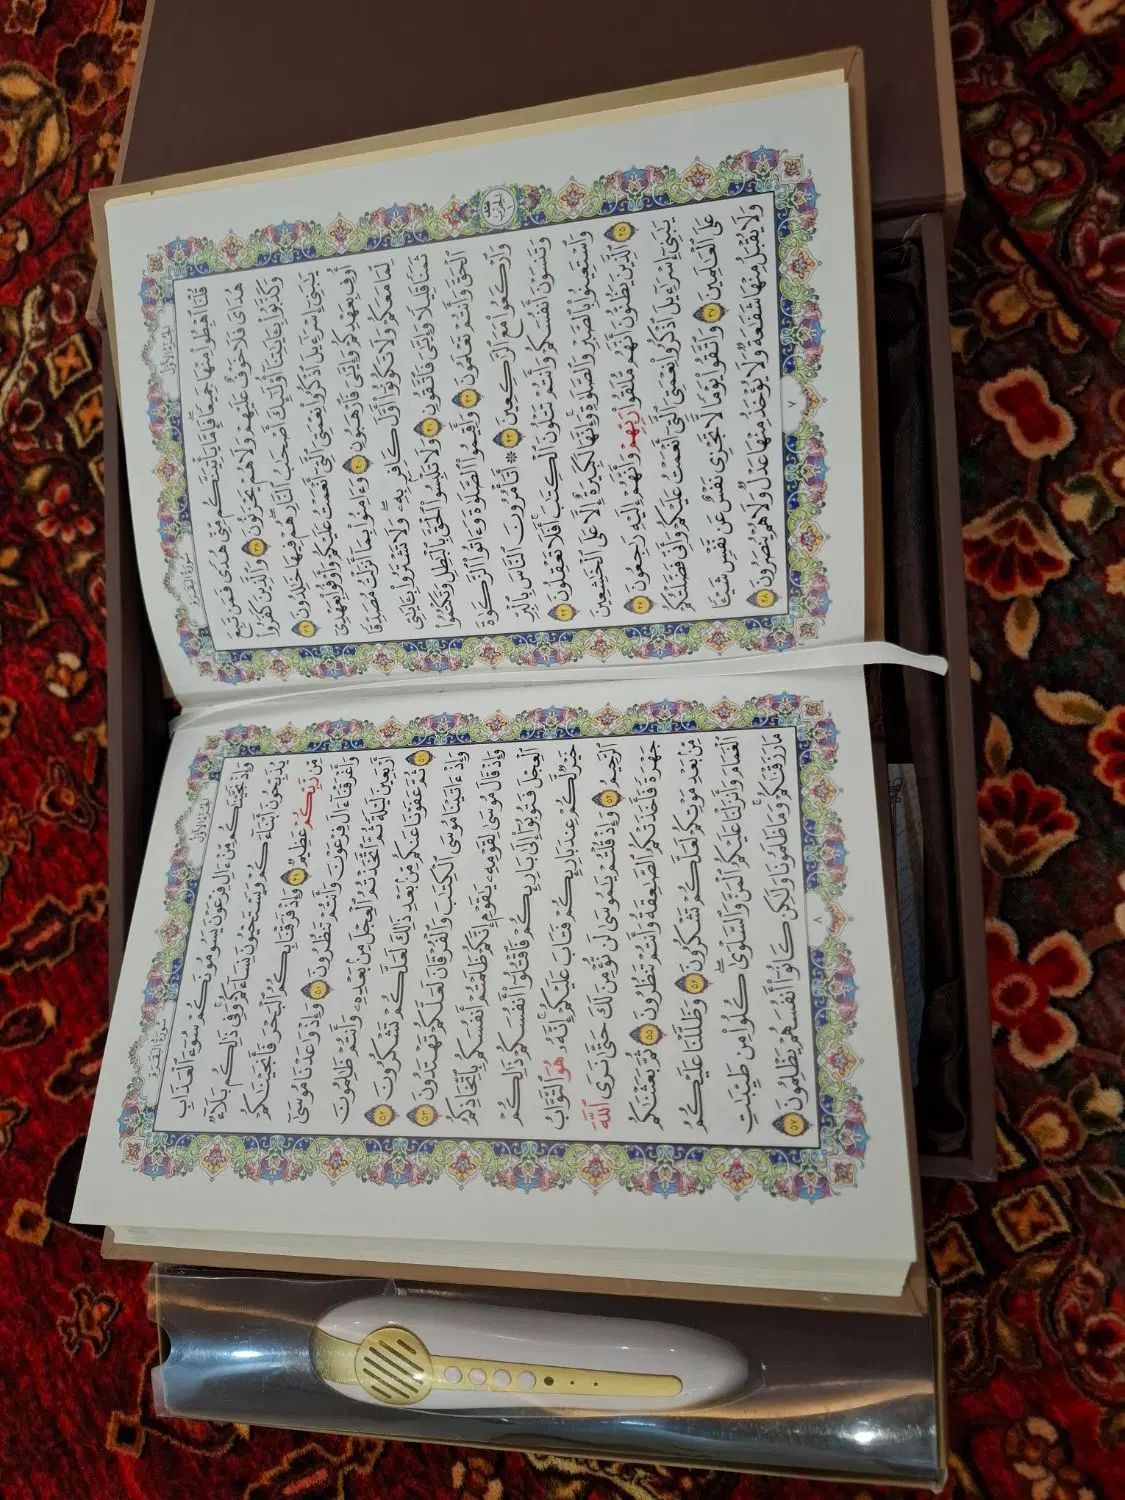 الجزء الأول
سورة البقرة
قُلْنَا ٱهْبِطُوا۟ مِنْهَا جَمِيعًا فَإِمَّا يَأْتِيَنَّكُم مِّنِّى هُدًى فَمَن تَبِعَ
هُدَاىَ فَلَا خَوْفٌ عَلَيْهِمْ وَلَا هُمْ يَحْزَنُونَ ٣٨ وَٱلَّذِينَ كَفَرُوا۟
وَكَذَّبُوا۟ بِـَٔايَٰتِنَآ أُو۟لَٰٓئِكَ أَصْحَٰبُ ٱلنَّارِ هُمْ فِيهَا خَٰلِدُونَ ٣٩
يَٰبَنِىٓ إِسْرَٰٓءِيلَ ٱذْكُرُوا۟ نِعْمَتِىَ ٱلَّتِىٓ أَنْعَمْتُ عَلَيْكُمْ وَأَوْفُوا۟ بِعَهْدِىٓ
أُوفِ بِعَهْدِكُمْ وَإِيَّٰىَ فَٱرْهَبُونِ ٤٠ وَءَامِنُوا۟ بِمَآ أَنزَلْتُ مُصَدِّقًا
لِّمَا مَعَكُمْ وَلَا تَكُونُوٓا۟ أَوَّلَ كَافِرٍۭ بِهِۦ وَلَا تَشْتَرُوا۟ بِـَٔايَٰتِى
ثَمَنًا قَلِيلًا وَإِيَّٰىَ فَٱتَّقُونِ ٤١ وَلَا تَلْبِسُوا۟ ٱلْحَقَّ بِٱلْبَٰطِلِ وَتَكْتُمُوا۟
ٱلْحَقَّ وَأَنتُمْ تَعْلَمُونَ ٤٢ وَأَقِيمُوا۟ ٱلصَّلَوٰةَ وَءَاتُوا۟ ٱلزَّكَوٰةَ
وَٱرْكَعُوا۟ مَعَ ٱلرَّٰكِعِينَ ٤٣ ۞ أَتَأْمُرُونَ ٱلنَّاسَ بِٱلْبِرِّ
وَتَنسَوْنَ أَنفُسَكُمْ وَأَنتُمْ تَتْلُونَ ٱلْكِتَٰبَ أَفَلَا تَعْقِلُونَ ٤٤
وَٱسْتَعِينُوا۟ بِٱلصَّبْرِ وَٱلصَّلَوٰةِ وَإِنَّهَا لَكَبِيرَةٌ إِلَّا عَلَى ٱلْخَٰشِعِينَ
٤٥ ٱلَّذِينَ يَظُنُّونَ أَنَّهُم مُّلَٰقُوا۟ رَبِّهِمْ وَأَنَّهُمْ إِلَيْهِ رَٰجِعُونَ ٤٦
يَٰبَنِىٓ إِسْرَٰٓءِيلَ ٱذْكُرُوا۟ نِعْمَتِىَ ٱلَّتِىٓ أَنْعَمْتُ عَلَيْكُمْ وَأَنِّى فَضَّلْتُكُمْ
عَلَى ٱلْعَٰلَمِينَ ٤٧ وَٱتَّقُوا۟ يَوْمًا لَّا تَجْزِى نَفْسٌ عَن نَّفْسٍ شَيْـًٔا
وَلَا يُقْبَلُ مِنْهَا شَفَٰعَةٌ وَلَا يُؤْخَذُ مِنْهَا عَدْلٌ وَلَا هُمْ يُنصَرُونَ ٤٨
٧
الجزء الأول
سورة البقرة
وَإِذْ نَجَّيْنَٰكُم مِّنْ ءَالِ فِرْعَوْنَ يَسُومُونَكُمْ سُوٓءَ ٱلْعَذَابِ
يُذَبِّحُونَ أَبْنَآءَكُمْ وَيَسْتَحْيُونَ نِسَآءَكُمْ وَفِى ذَٰلِكُم بَلَآءٌ
مِّن رَّبِّكُمْ عَظِيمٌ ٤٩ وَإِذْ فَرَقْنَا بِكُمُ ٱلْبَحْرَ فَأَنجَيْنَٰكُمْ
وَأَغْرَقْنَآ ءَالَ فِرْعَوْنَ وَأَنتُمْ تَنظُرُونَ ٥٠ وَإِذْ وَٰعَدْنَا مُوسَىٰٓ
أَرْبَعِينَ لَيْلَةً ثُمَّ ٱتَّخَذْتُمُ ٱلْعِجْلَ مِنۢ بَعْدِهِۦ وَأَنتُمْ ظَٰلِمُونَ
٥١ ثُمَّ عَفَوْنَا عَنكُم مِّنۢ بَعْدِ ذَٰلِكَ لَعَلَّكُمْ تَشْكُرُونَ ٥٢
وَإِذْ ءَاتَيْنَا مُوسَى ٱلْكِتَٰبَ وَٱلْفُرْقَانَ لَعَلَّكُمْ تَهْتَدُونَ ٥٣
وَإِذْ قَالَ مُوسَىٰ لِقَوْمِهِۦ يَٰقَوْمِ إِنَّكُمْ ظَلَمْتُمْ أَنفُسَكُم بِٱتِّخَاذِكُمُ
ٱلْعِجْلَ فَتُوبُوٓا۟ إِلَىٰ بَارِئِكُمْ فَٱقْتُلُوٓا۟ أَنفُسَكُمْ ذَٰلِكُمْ
خَيْرٌ لَّكُمْ عِندَ بَارِئِكُمْ فَتَابَ عَلَيْكُمْ إِنَّهُۥ هُوَ ٱلتَّوَّابُ
ٱلرَّحِيمُ ٥٤ وَإِذْ قُلْتُمْ يَٰمُوسَىٰ لَن نُّؤْمِنَ لَكَ حَتَّىٰ نَرَى ٱللَّهَ
جَهْرَةً فَأَخَذَتْكُمُ ٱلصَّٰعِقَةُ وَأَنتُمْ تَنظُرُونَ ٥٥ ثُمَّ بَعَثْنَٰكُم
مِّنۢ بَعْدِ مَوْتِكُمْ لَعَلَّكُمْ تَشْكُرُونَ ٥٦ وَظَلَّلْنَا عَلَيْكُمُ
ٱلْغَمَامَ وَأَنزَلْنَا عَلَيْكُمُ ٱلْمَنَّ وَٱلسَّلْوَىٰ كُلُوا۟ مِن طَيِّبَٰتِ
مَا رَزَقْنَٰكُمْ وَمَا ظَلَمُونَا وَلَٰكِن كَانُوٓا۟ أَنفُسَهُمْ يَظْلِمُونَ ٥٧
٨